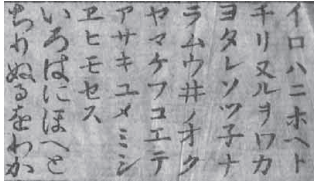 イロハニホヘト
チリヌルヲワカ
ヨタレソツ子ナ
ラムウ井ノオク
ヤマケフコエテ
アサキユメミシ
ヱヒモセス
いろはにほへと
ちりぬるをわか